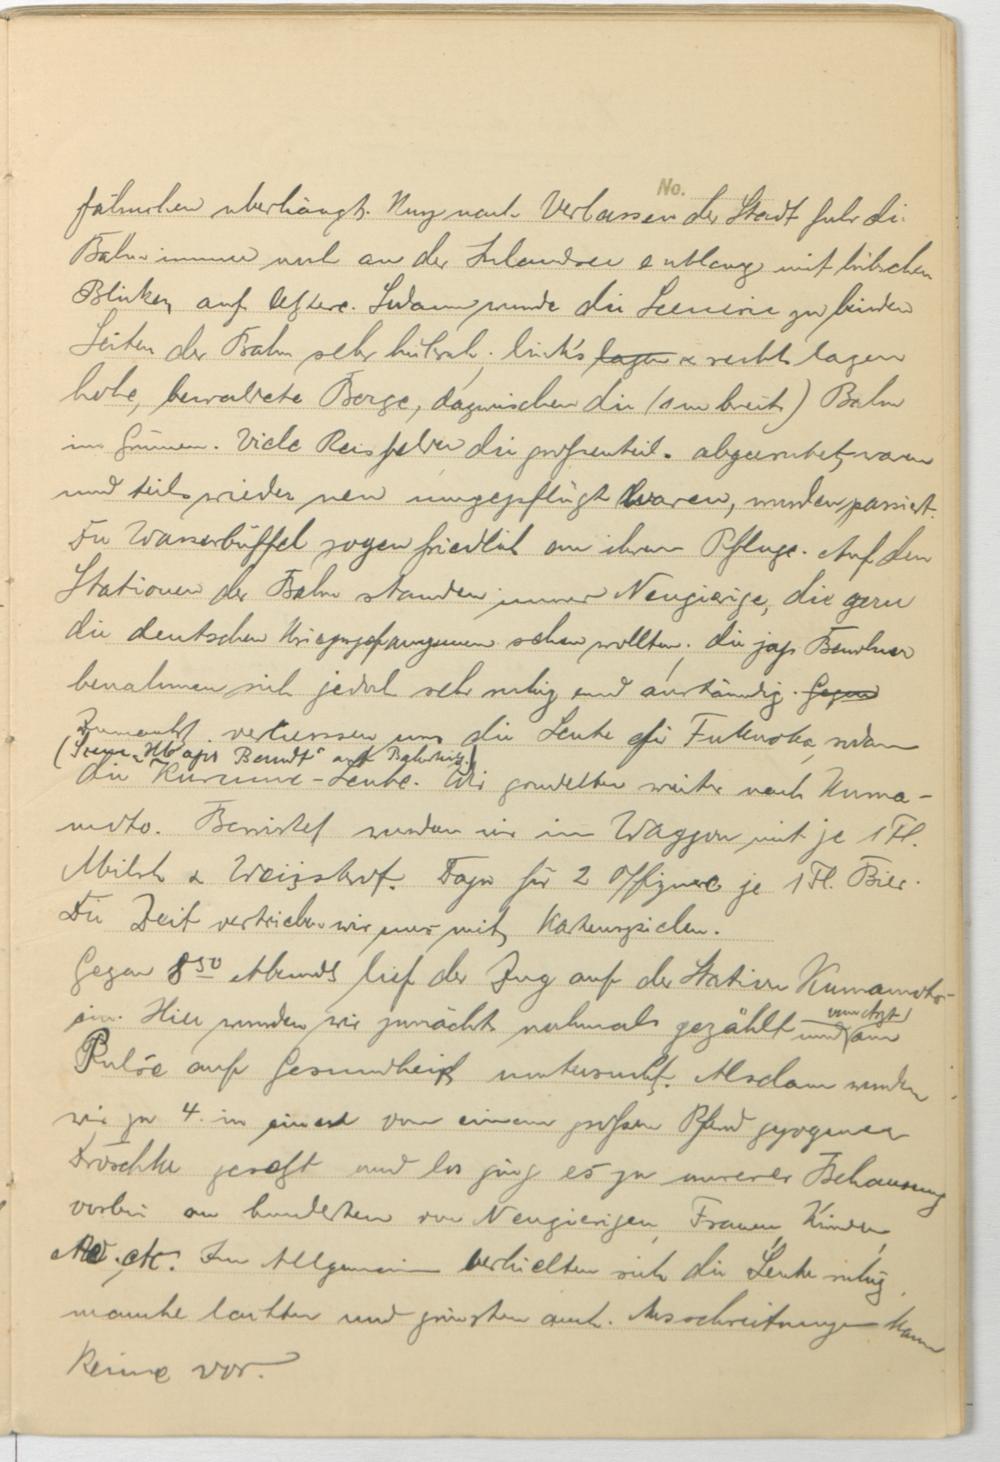 No.
fähnchen überhängt. Kurz nach Verlassen der Stadt fuhr die
Bahn immer noch an der Inlandsee entlang mit hübschen
Blicken auf letztere. Sodann wurde die Scenerie zu beiden
Seiten der Bahn sehr hübsch; links lagen & rechts lagen
hohe, bewaldete Berge, dazwischen die (1m breite) Bahn
im Grünen. Viele Reisfelder die grossenteils abgeerntet waren
und teils wieder neu umgepflügt waren, wurden passiert.
Die Wasserbüffel zogen friedlich an ihrem Pfluge. Auf den
Stationen der Bahn standen immer Neugierige, die gern
die deutschen Kriegsgefangenen sehen wollten; die jap. Bewohner
benahmen sich jedoch sehr ruhig und anständig. Gegen
Zunächst verliessen uns die Leute für Fukuoka, sodann
(Scene "Major Berndt" auf Bahnhof)
die Kurume-Leute. Wir gondelten weiter nach Kuma-
moto. Bewirtet wurden wir im Waggon mit je 1 Fl.
Milch & Weissbrot. Dazu für 2 Offiziere je 1 Fl. Bier.
Die Zeit vertrieben wir uns mit Kartenspielen.
Gegen 8⁵⁰ Abends lief der Zug auf der Station Kumamoto
ein. Hier wurden wir zunächst nochmals gezählt und am
vom Arzt
Pulse auf Gesundheit untersucht. Alsdann wurden
wir zu 4 in einer von einem grossen Pferd gezogenen
Droschke gesetzt und los ging es zu unserer Behausung
vorbei an hunderten von Neugierigen, Frauen, Kinder,
etc. Im Allgemeinen verhielten sich die Leute ruhig,
manche lachten und grinsten auch. Ausschreitungen kamen
keine vor.